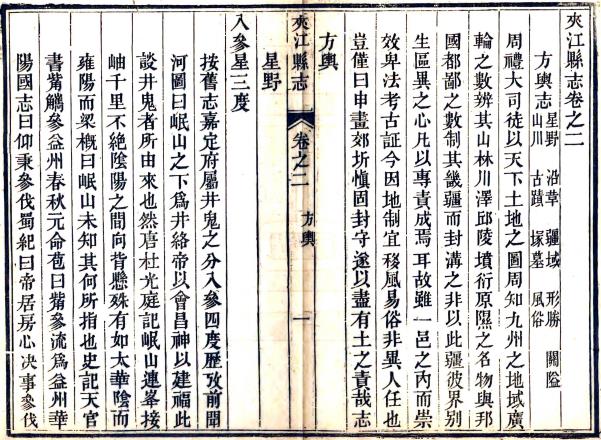 夾江縣志卷之二
方輿志 星野 沿革 疆域 形勝 關隘
山川 古蹟 塚墓 風俗
周禮大司徒以天下土地之圖周知九州之地域廣
輪之數辨其山林川澤邱陵墳衍原隰之名物與邦
國都鄙之數制其畿疆而封溝之非以此疆彼界別
生區異之心凡以專責成焉耳故雖一邑之內而崇
效卑法考古証今因地制宜移風易俗非異人任也
豈僅曰申畫郊圻慎固封守遂以盡有土之責哉志
方輿
夾江縣志
卷之二
方輿
一
星野
入參星三度
按舊志嘉定府屬井鬼之分入參四度歷攷前聞
河圖曰岷山之下為井絡帝以會昌神以建福此
談井鬼者所由來也然唐杜光庭記岷山連峯接
岫千里不絶陰陽之間向背懸殊有如太華陰而
雍陽而梁概曰岷山未知其何所指也史記天官
書觜觿參益州春秋元命苞曰觜參流為益州華
陽國志曰仰秉參伐蜀紀曰帝居房心決事參伐